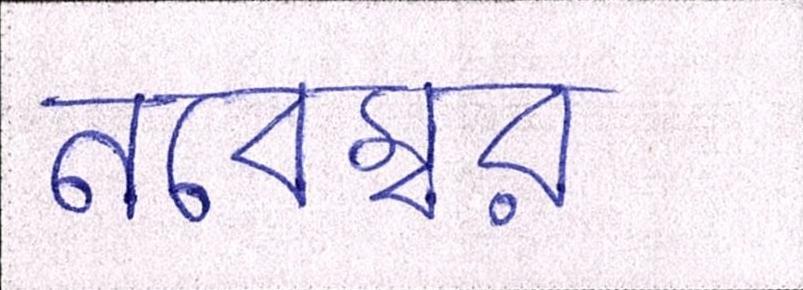 নবেম্বর